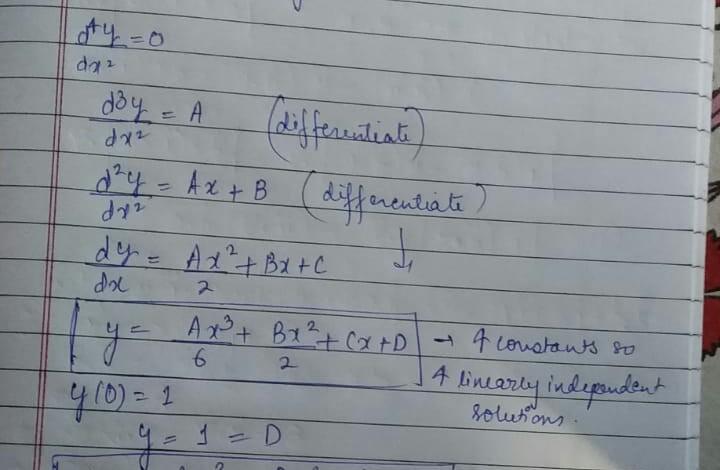 d⁴y/dx² = 0
d3y/dx² = A (differentiate)
d²y/dx² = Ax + B (differentiate)
dy/dx = Ax²/2 + Bx + C ↓
y = Ax³/6 + Bx²/2 + Cx + D → 4 constants so
4 linearly independent
solutions.
y(0) = 1
y = 1 = D